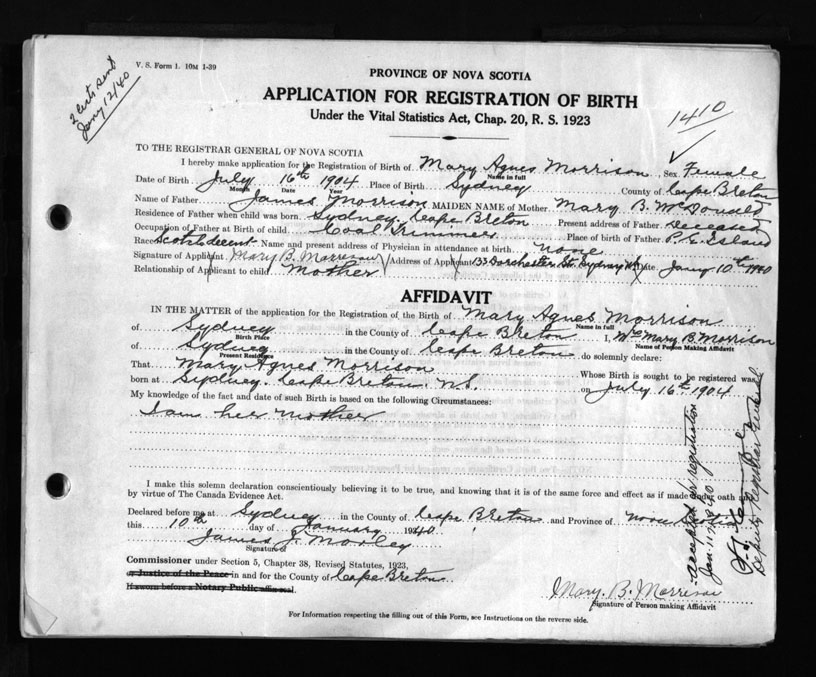 V. S. Form 1. 10M 1-39
2 certs sent
Jany 12/40
PROVINCE OF NOVA SCOTIA
APPLICATION FOR REGISTRATION OF BIRTH
Under the Vital Statistics Act, Chap. 20, R. S. 1923
1410
TO THE REGISTRAR GENERAL OF NOVA SCOTIA
I hereby make application for the Registration of Birth of Mary Agnes Morrison Sex Female
Name in full
Date of Birth July 16th 1904 Place of Birth Sydney County of Cape Breton
Month Date Year
Name of Father James Morrison MAIDEN NAME of Mother Mary B. McDonald
Residence of Father when child was born Sydney. Cape Breton Present address of Father Deceased
Occupation of Father at Birth of child Coal Trimmer Place of birth of Father P. E. Island
Race Scotch decent Name and present address of Physician in attendance at birth none
Signature of Applicant Mary B. Morrison Address of Applicant 133 Dorchester St. Sydney NS Date Jany 10th 1940
Relationship of Applicant to child Mother
AFFIDAVIT
IN THE MATTER of the application for the Registration of the Birth of Mary Agnes Morrison
Name in full
of Sydney in the County of Cape Breton I, Mrs Mary B. Morrison
Birth Place Name of Person Making Affidavit
of Sydney in the County of Cape Breton do solemnly declare:
Present Residence
That Mary Agnes Morrison Whose Birth is sought to be registered was
born at Sydney. Cape Breton. N.S. on July 16th 1904
My knowledge of the fact and date of such Birth is based on the following Circumstances:
I am her mother
I make this solemn declaration conscientiously believing it to be true, and knowing that it is of the same force and effect as if made under oath and
by virtue of The Canada Evidence Act.
Declared before me at Sydney in the County of Cape Breton and Province of Nova Scotia
this 10th day of January 1940
James J. Morley
Signature of
Commissioner under Section 5, Chapter 38, Revised Statutes, 1923,
or Justice of the Peace in and for the County of Cape Breton
If sworn before a Notary Public affix seal.
Mary. B. Morrison
Signature of Person making Affidavit
For Information respecting the filling out of this Form, see Instructions on the reverse side.
Accepted for registration
Jan. 11th 1940
Deputy Registrar General